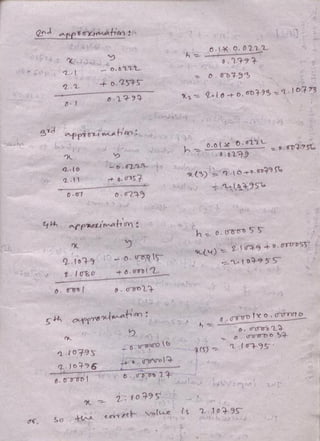 2nd approximation:
x y
2.1 - 0.0222
2.2 + 0.2575
0.1 0.2797
h = 0.1 x 0.0222
0.2797
= 0.00793
x2 = 2.10 + 0.00793 = 2.10793
3rd approximation:
x y
2.10 - 0.0222
2.11 + 0.0057
0.01 0.0279
h = 0.01 x 0.0222
0.0279
= 0.007956
x(3) = 2.10 + 0.007956
= 2.107956
4th approximation:
x y
2.1079 - 0.00015
2.1080 + 0.00012
0.0001 0.00027
h = 0.000055
x(4) = 2.1079 + 0.000055
= 2.107955
5th approximation:
x y
2.10795 - 0.000010
2.10796
0.00001 0.000027
x(5) = 2.10795
x = 2.10795
or, so the correct value is 2.10795